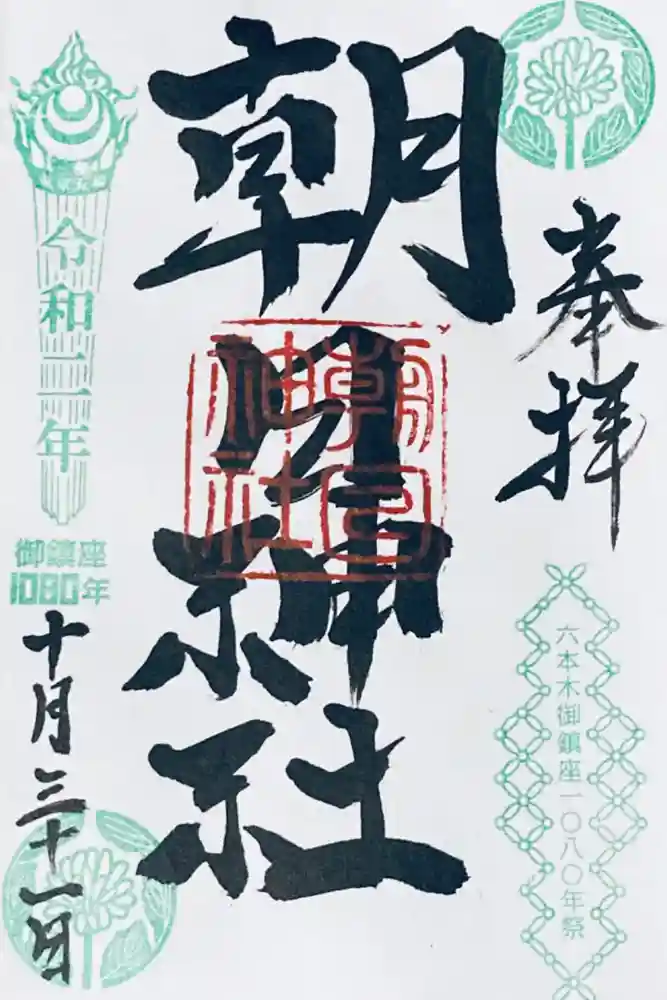 奉拝
六本木御鎮座一〇八〇年祭
朝日神社
朝日神社
令和二年
御鎮座
1080年
十月三十一日